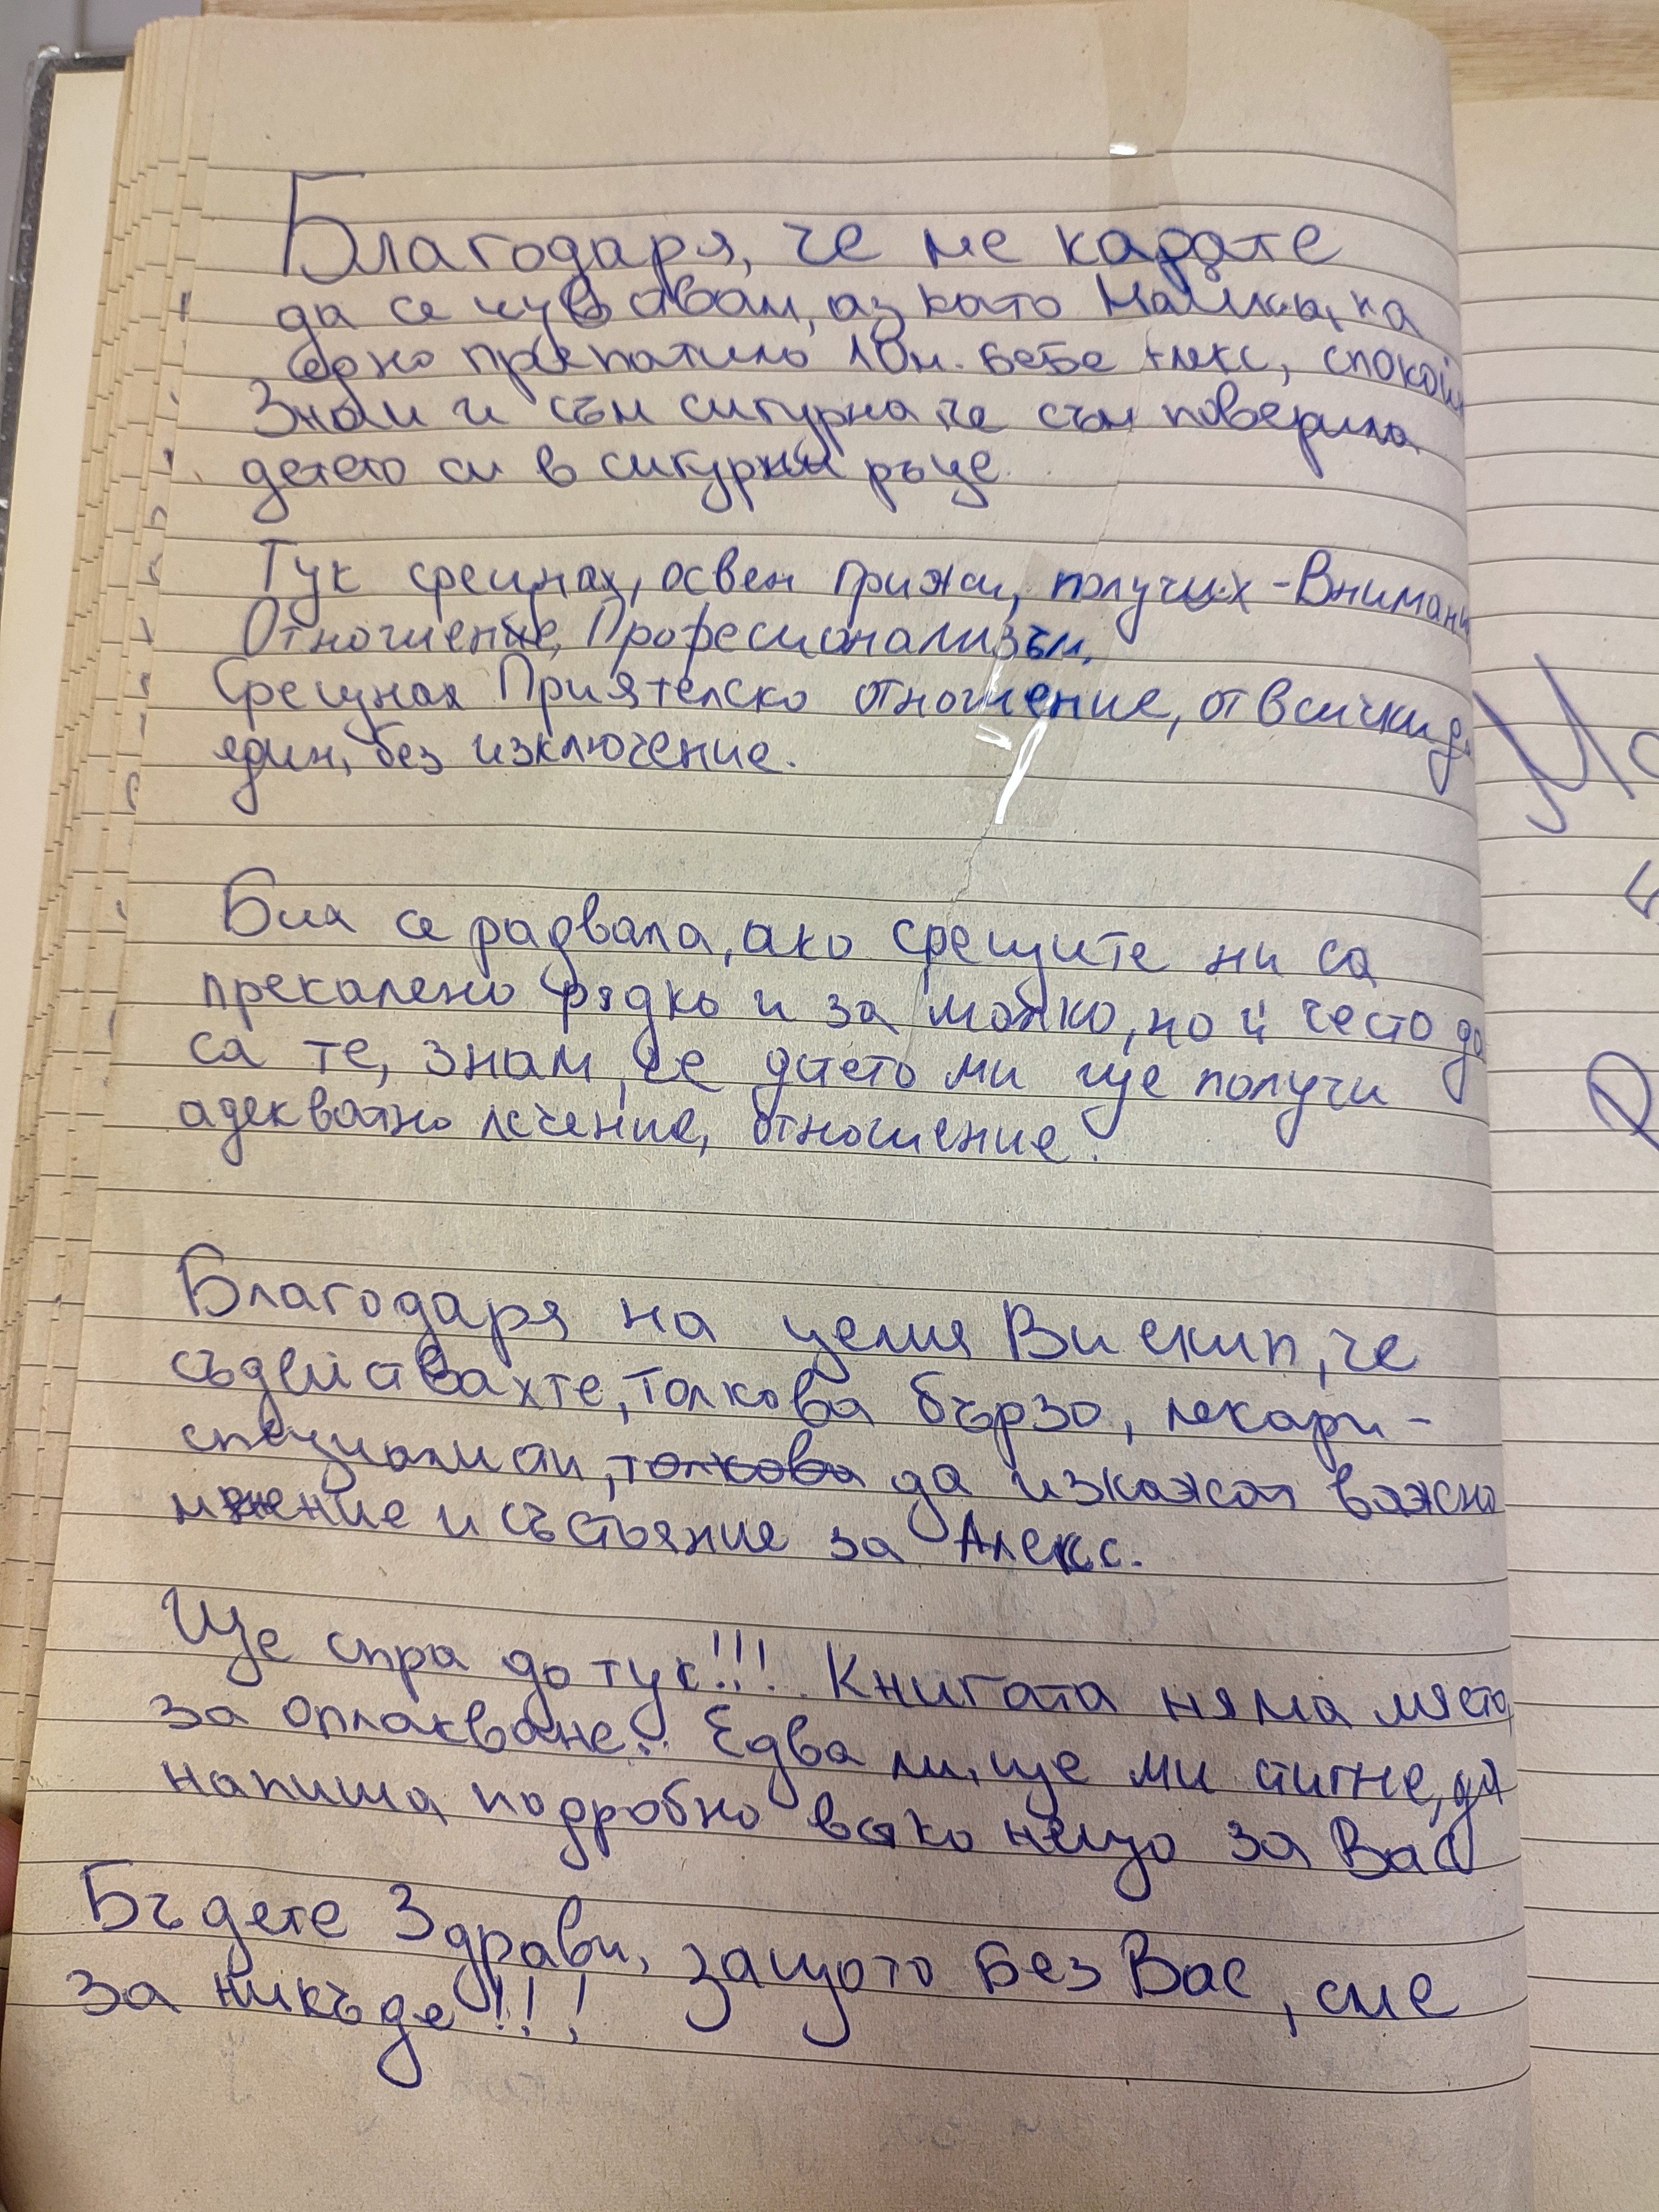 Благодаря, че ме карате
да се чувствам, аз като майка, на
едно препатило 10м. бебе Алекс, спокой
Знам и съм сигурна че съм поверила
детето си в сигурни ръце.
Тук срещнах, освен грижи, получих - Вниман
Отношение, Професионализъм,
Срещнах Приятелско отношение, от всички д
един, без изключение.
Бих се радвала, ако срещите ни са
прекалено рядко и за малко, но и често да
са те, знам, че детето ми ще получи
адекватно лечение, отношение.
Благодаря на целия Ви екип, че
съдействахте, толкова бързо, лекари -
специалисти, толкова да изкажат важно
мнение и състояние за Алекс.
Ще спра до тук!!! Книгата няма място,
за оплакване. Едва ли, ще ми стигне, да
напиша подробно всяко нещо за Вас
Бъдете Здрави, защото без Вас, сме
за никъде!!!
Ма